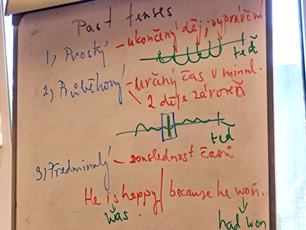 Past tenses
1, Prostý - ukončený děj; vyprávění
teď
2) Průběhový - určitý čas v minul.
- 2 děje zároveň
teď
3) Předminulý - souslednost časů
He is happy / because he won.
was
had won